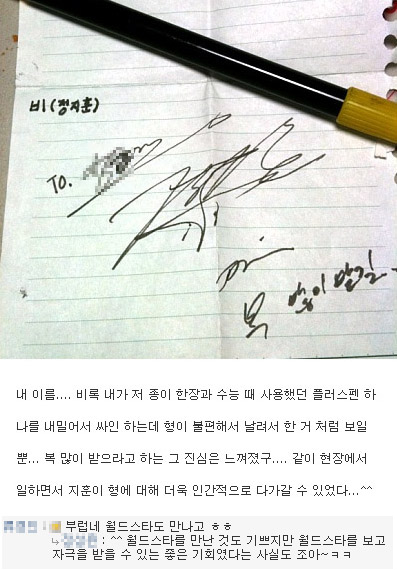 비(정지훈)
TO.
Rain
복 많이 받길
내 이름.... 비록 내가 저 종이 한장과 수능 때 사용했던 플러스펜 하
나를 내밀어서 싸인 하는데 형이 불편해서 날려서 한 거 처럼 보일
뿐... 복 많이 받으라고 하는 그 진심은 느껴졌구.... 같이 현장에서
일하면서 지훈이 형에 대해 더욱 인간적으로 다가갈 수 있었다...^^
부럽네 월드스타도 만나고 ㅎㅎ
: ^^ 월드스타를 만난 것도 기쁘지만 월드스타를 보고
자극을 받을 수 있는 좋은 기회였다는 사실도 조아~ㅋㅋ